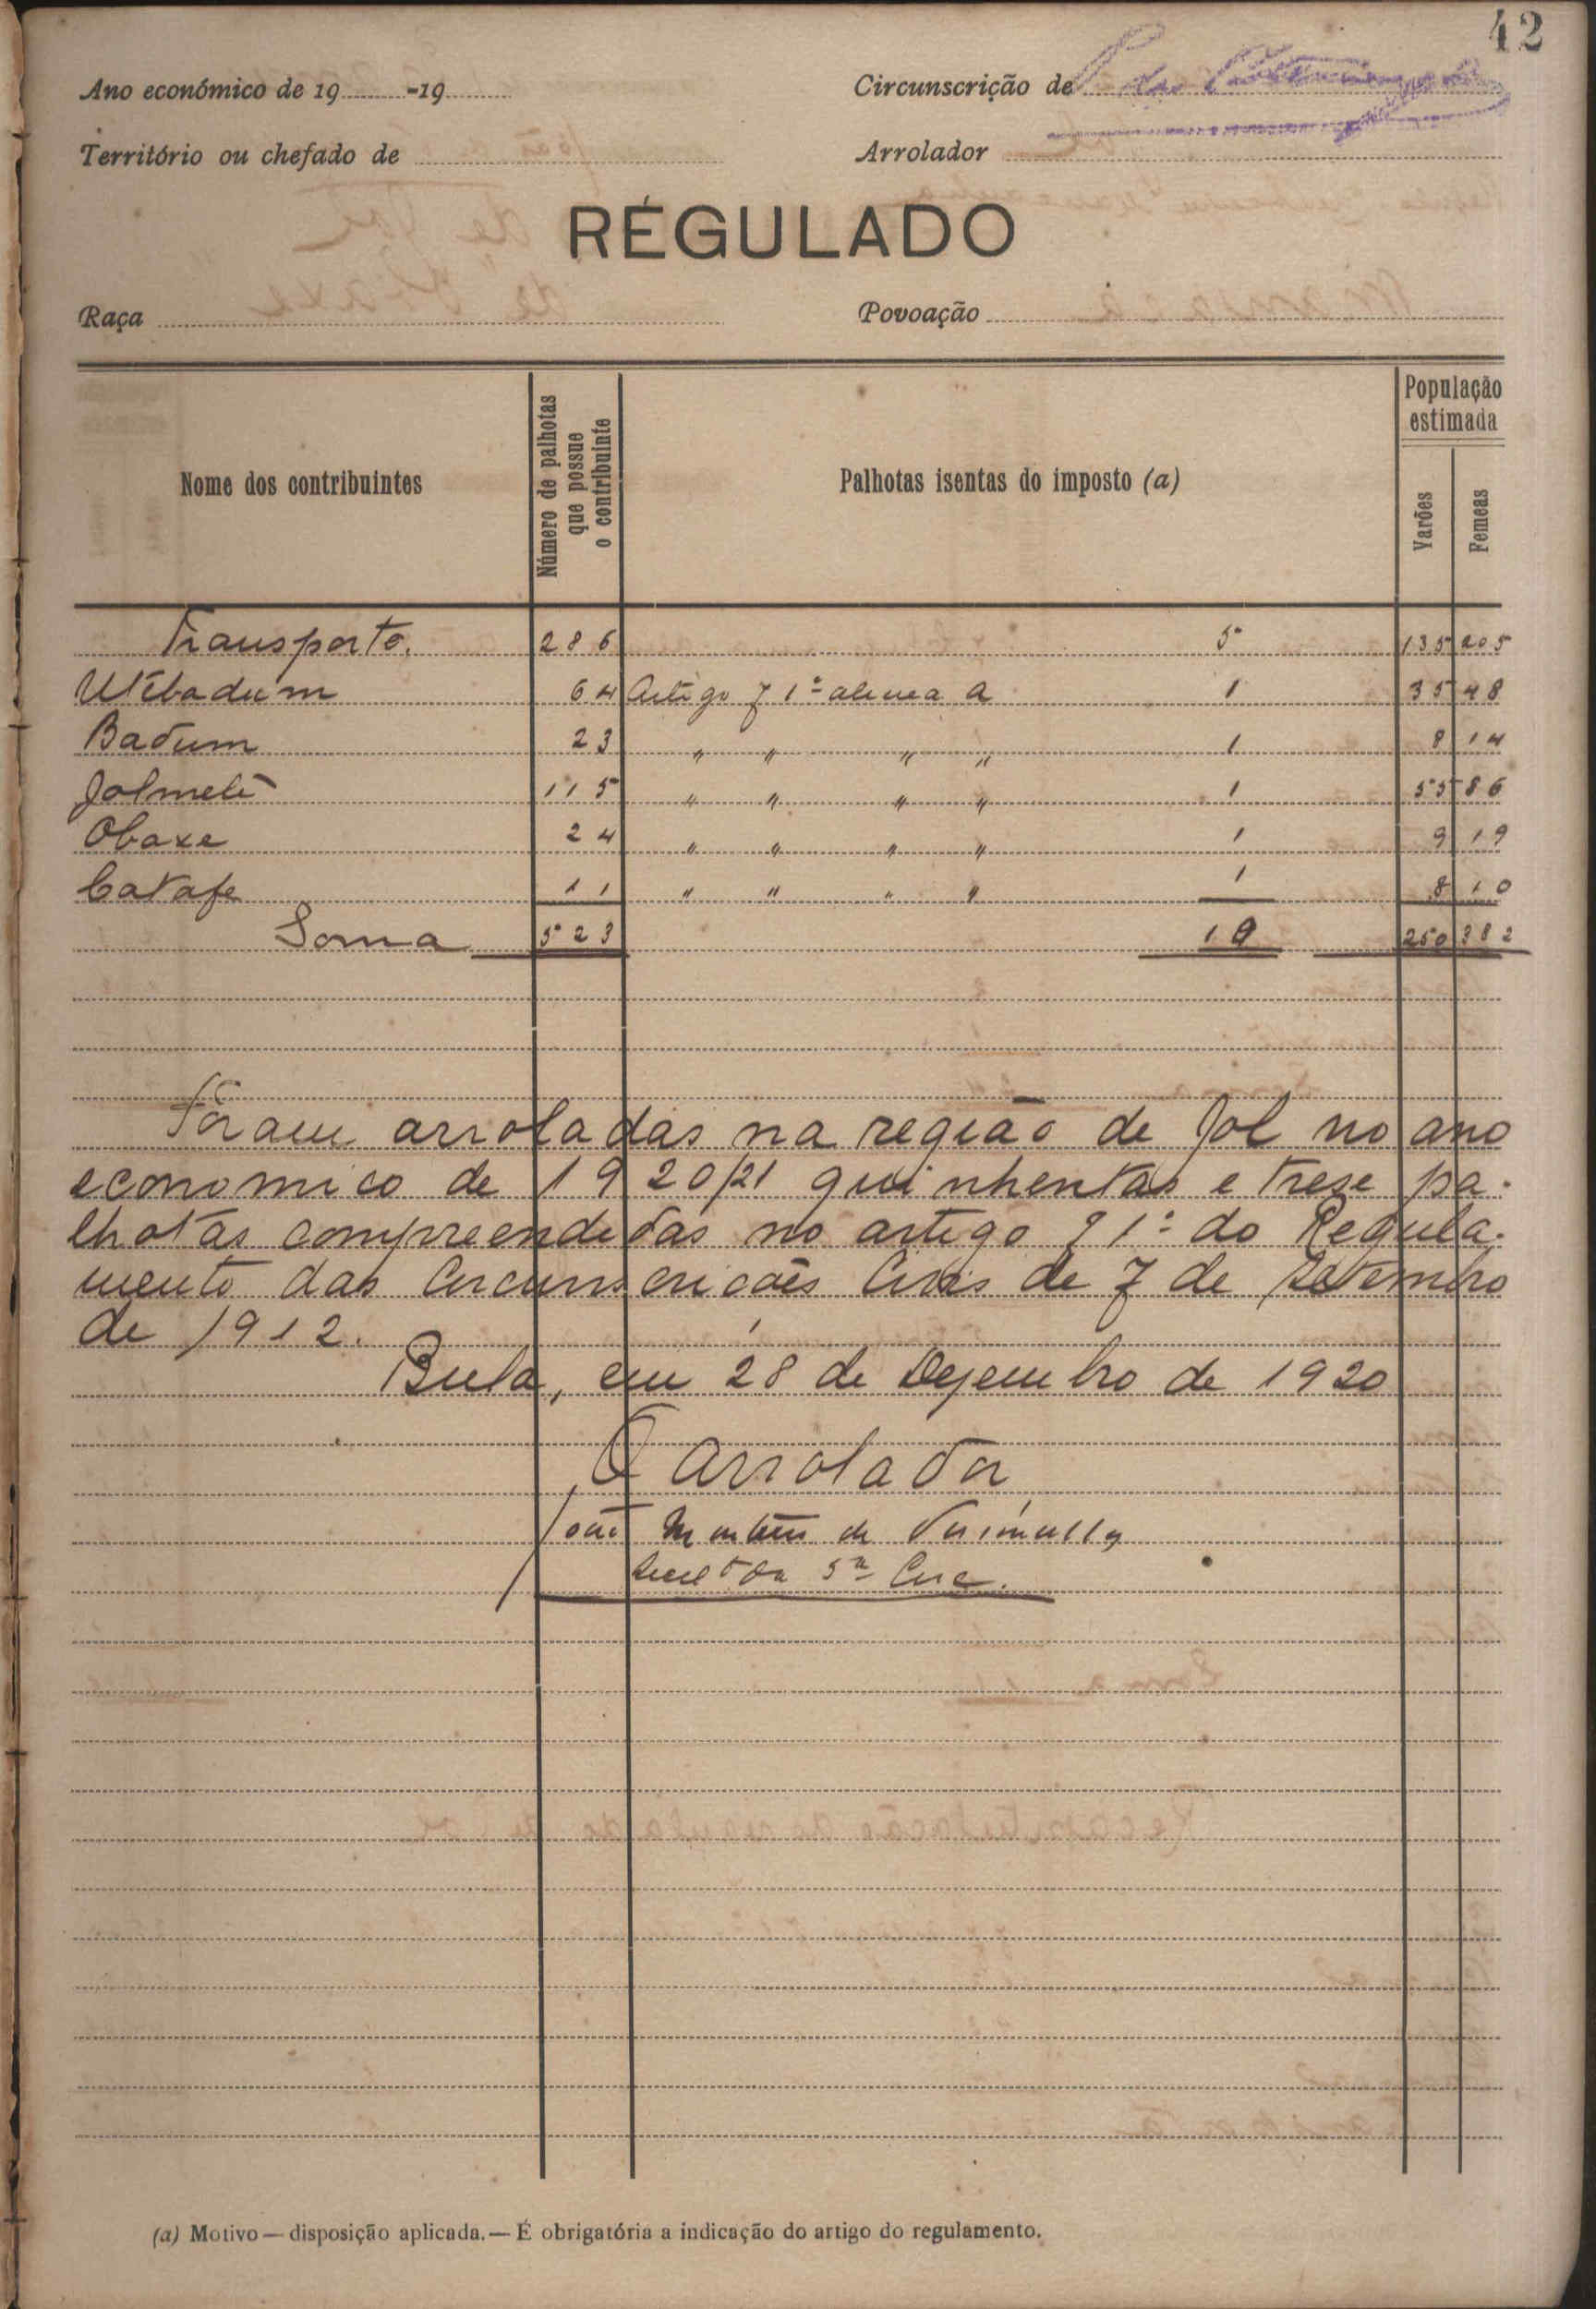 42
Ano económico de 19 -19
Circunscrição de
Território ou chefado de
Arrolador
RÉGULADO
Raça
Povoação
Nome dos contribuintes
Número de palhotas que possue o contribuinte
Palhotas isentas do imposto (a)
População estimada
Varões
Femeas
Transporte. 286 5 135 205
Utibadum 64 Artigo 71º alinea a 1 35 48
Badum 23 " " " " 1 8 14
Jolmete 115 " " " " 1 55 86
Obaxe 24 " " " " 1 9 19
Catafe 11 " " " " 1 8 10
Soma 523 10 250 382
Fôram arroladas na região de Jol no ano
economico de 1920/21 quinhentas e trese pa-
lhotas compreendidas no artigo 91º do Regula-
mento das Circunscrições Civis de 7 de Setembro
de 1912.
Bula, em 28 de Dezembro de 1920
O Arrolador,
João Martins de
5ª Circ.
(a) Motivo — disposição aplicada. — É obrigatória a indicação do artigo do regulamento.